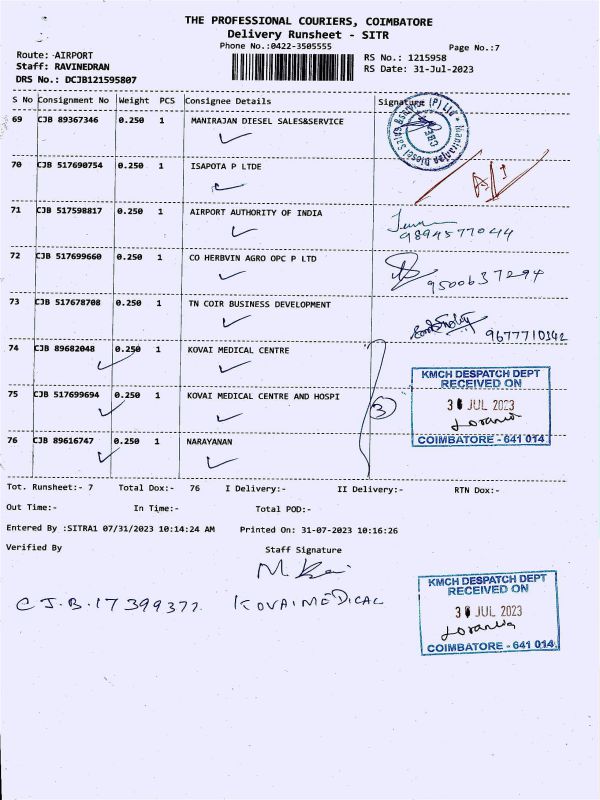 THE PROFESSIONAL COURIERS, COIMBATORE
Delivery Runsheet - SITR
Phone No.:0422-3505555
Page No.:7
Route: AIRPORT
RS No.: 1215958
Staff: RAVINEDRAN
RS Date: 31-Jul-2023
DRS No.: DCJB121595807
S No Consignment No Weight PCS Consignee Details Signature
69 CJB 89367346 0.250 1 MANIRAJAN DIESEL SALES&SERVICE
70 CJB 517690754 0.250 1 ISAPOTA P LTDE
71 CJB 517598817 0.250 1 AIRPORT AUTHORITY OF INDIA
9894577044
72 CJB 517699660 0.250 1 CO HERBVIN AGRO OPC P LTD
9500637294
73 CJB 517678708 0.250 1 TN COIR BUSINESS DEVELOPMENT
9677710342
74 CJB 89682048 0.250 1 KOVAI MEDICAL CENTRE
KMCH DESPATCH DEPT
RECEIVED ON
75 CJB 517699694 0.250 1 KOVAI MEDICAL CENTRE AND HOSPI
3
JUL 2023
COIMBATORE - 641 014
76 CJB 89616747 0.250 1 NARAYANAN
Tot. Runsheet:- 7 Total Dox:- 76 I Delivery:- II Delivery:- RTN Dox:-
Out Time:- In Time:- Total POD:-
Entered By :SITRA1 07/31/2023 10:14:24 AM Printed On: 31-07-2023 10:16:26
Verified By Staff Signature
C.J.B.17399377. KOVAI MEDICAL
KMCH DESPATCH DEPT
RECEIVED ON
JUL 2023
COIMBATORE - 641 014